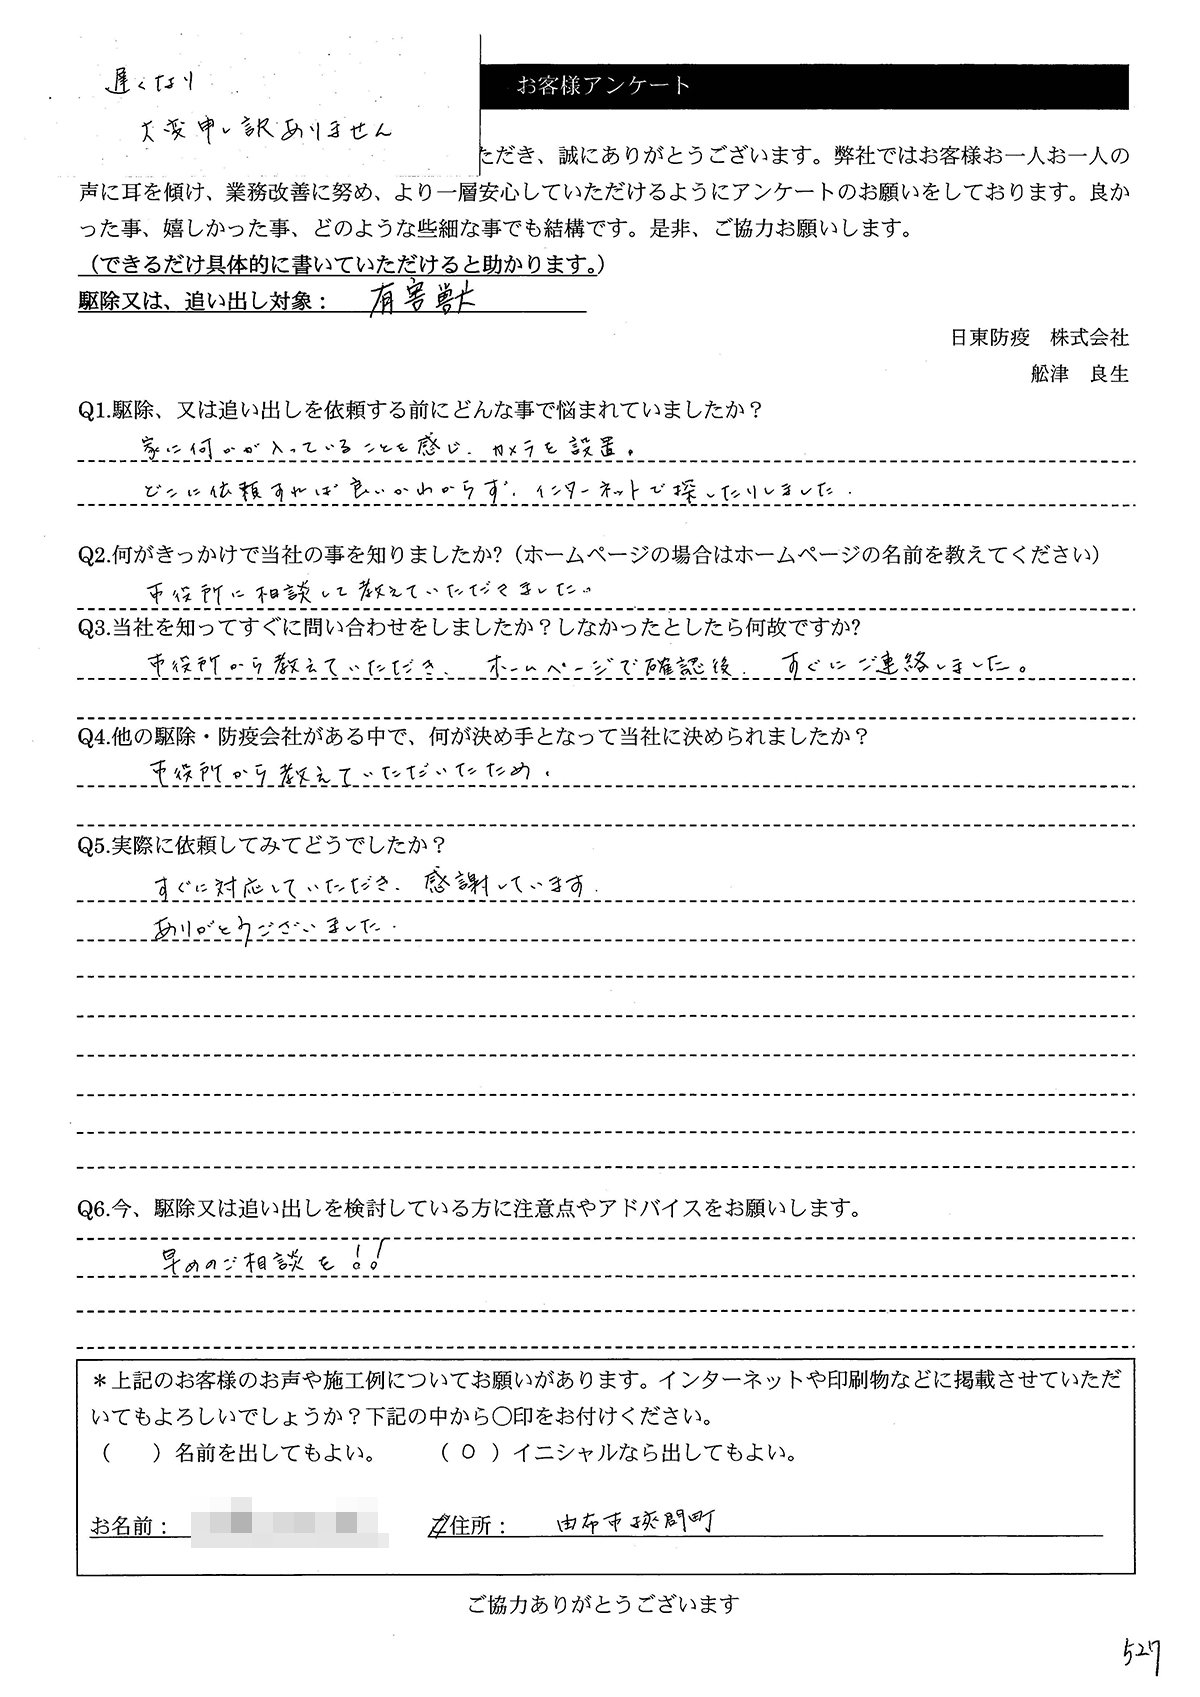 遅くなり
大変申し訳ありません
お客様アンケート
ただき、誠にありがとうございます。弊社ではお客様お一人お一人の
声に耳を傾け、業務改善に努め、より一層安心していただけるようにアンケートのお願いをしております。良か
った事、嬉しかった事、どのような些細な事でも結構です。是非、ご協力お願いします。
（できるだけ具体的に書いていただけると助かります。）
駆除又は、追い出し対象： 有害獣
日東防疫　株式会社
舩津　良生
Q1.駆除、又は追い出しを依頼する前にどんな事で悩まれていましたか？
家に何かが入っていることを感じ、カメラを設置。
どこに依頼すれば良いかわからず、インターネットで探したりしました。
Q2.何がきっかけで当社の事を知りましたか?（ホームページの場合はホームページの名前を教えてください）
市役所に相談して教えていただきました。
Q3.当社を知ってすぐに問い合わせをしましたか？しなかったとしたら何故ですか?
市役所から教えていただき、ホームページで確認後、すぐにご連絡しました。
Q4.他の駆除・防疫会社がある中で、何が決め手となって当社に決められましたか？
市役所から教えていただいたため。
Q5.実際に依頼してみてどうでしたか？
すぐに対応していただき、感謝しています。
ありがとうございました。
Q6.今、駆除又は追い出しを検討している方に注意点やアドバイスをお願いします。
早めのご相談を!!
＊上記のお客様のお声や施工例についてお願いがあります。インターネットや印刷物などに掲載させていただ
いてもよろしいでしょうか？下記の中から〇印をお付けください。
（　　）名前を出してもよい。　　（ ○ ）イニシャルなら出してもよい。
お名前：　住所： 由布市挾間町
ご協力ありがとうございます
527